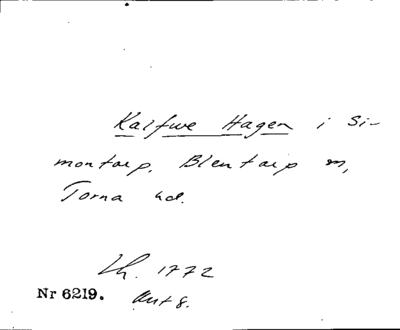 Kalfwe Hagen i Si-
montarp. Blentarp sn,
Torna hd.
Lh. 1772
Nr 6219. Akt 8.